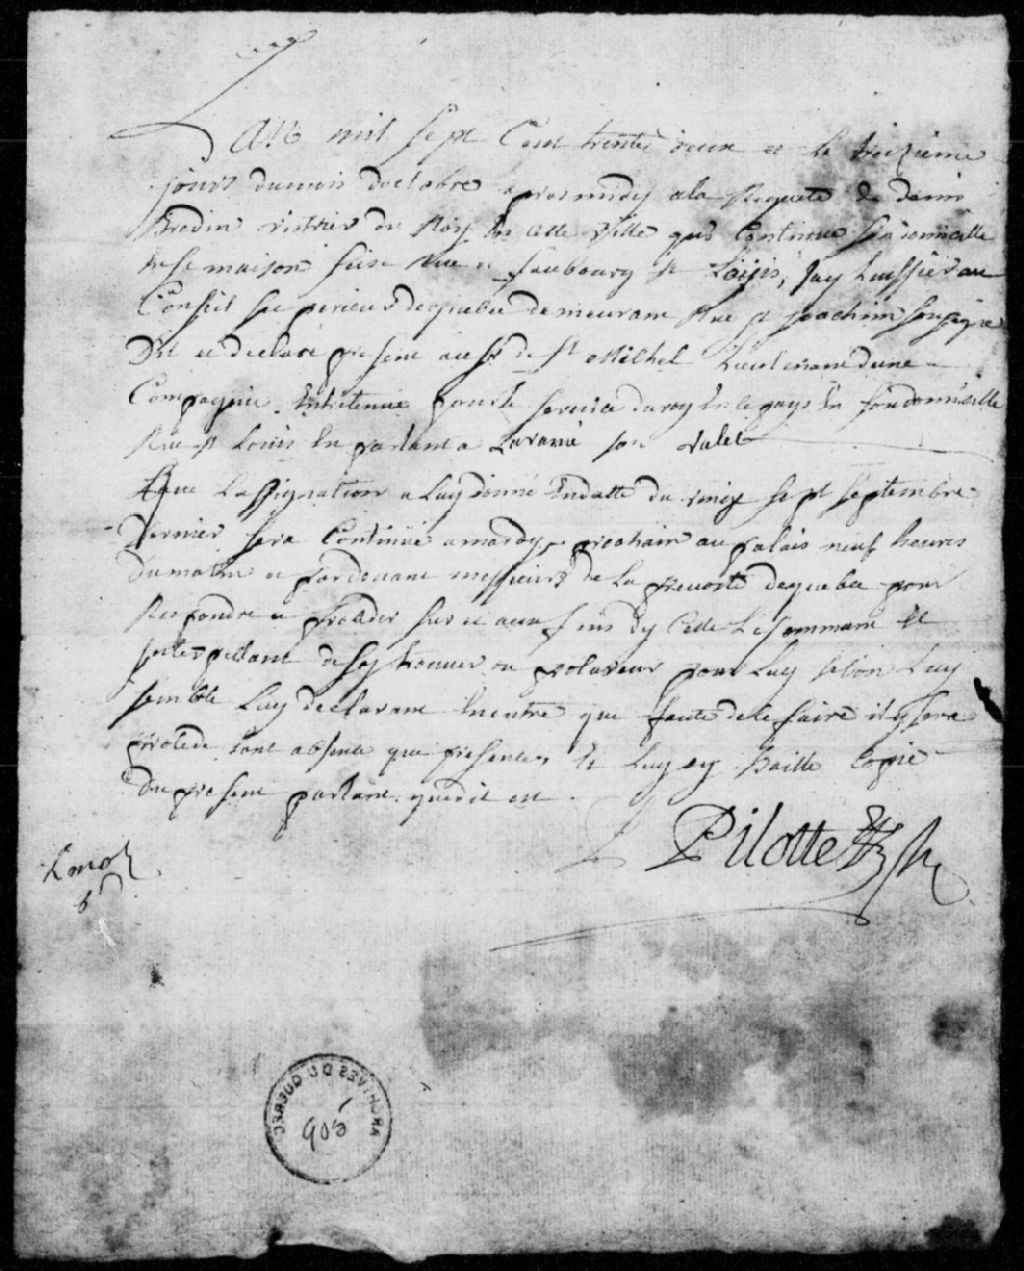 Lan mil sept Cent trente deux et le treizieme
jour du mois doctobre apres midy ala Requete de denis
Bredin vitrier du Roy En cette Ville qui Continue son domicille
En sa maison sise Rue et faubourg St Louis, Jay huissier au
Conseil superieur dequebec demeurant Rue St Joachim soussigné
Dit et declaré present au Sr de St Michel Lieutenant dune
Compagnie Entretenue pour le service du roy En ce pays En son domicille
Rue St Louis En parlant a Laramé son valet
Que Lassignation a Luy donné Endatte du vingt sept septembre
Dernier sera Continué a mardy prochain au palais neuf heures
Du matin et pardevant messieurs de La prevosté dequebec pour
Respondre et proceder sur et aux fins dy Celle Le sommant Et
Interpellant de sy trouver ou procureur pour Luy selon Luy
semble Luy declarant Enoutre que faute de le faire il y sera
procédé tant absente que presentes Et Luy ay Baillé Copie
Du present parlant que dit est
Pilotte
ARCHIVES DU QUEBEC
905